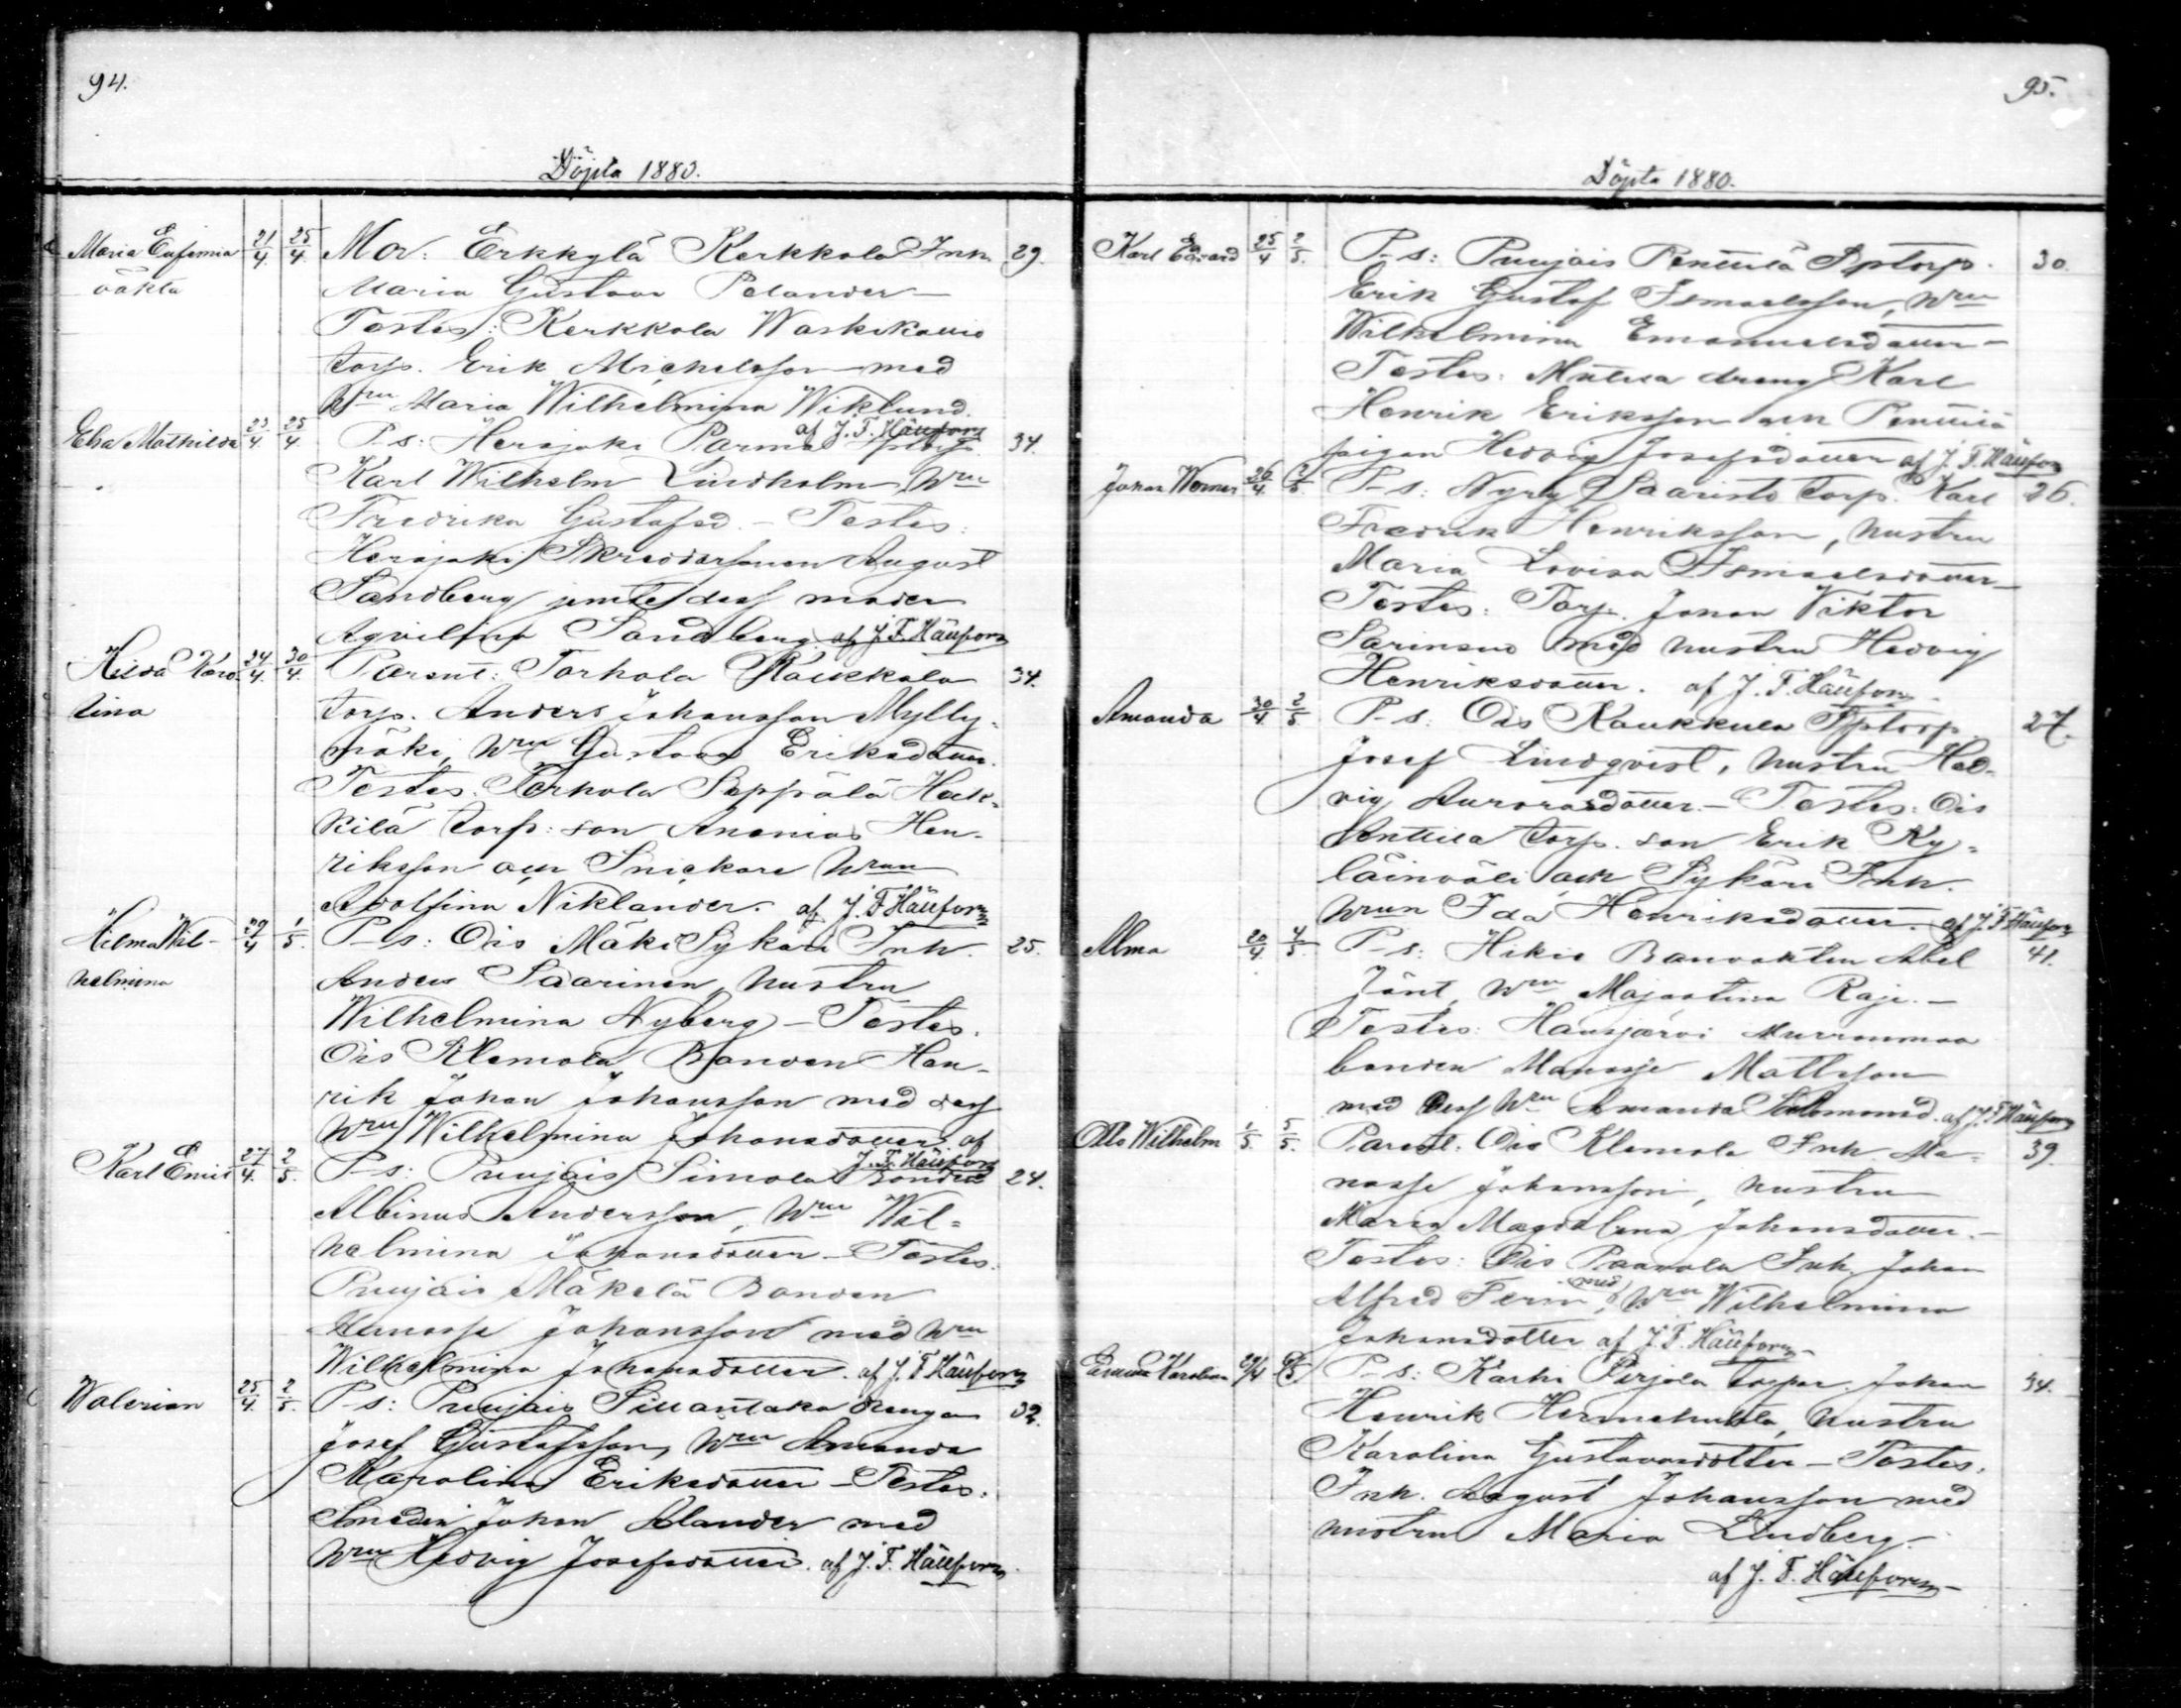 94.
Döpta 1880.
Maria Eufemia 21/4 25/4 Mor: Erkkylä Kerkkola Inh. 29.
oäkta Maria Gustava Pelander —
Testes: Kerkkola Waskikallio
torp. Erik Michelsson med
hru Maria Wilhelmina Wiklund.
af J. F. Hällfors
Elsa Mathilda 23/4 25/4 P-s: Herajoki Parma Sptorp. 34.
Karl Wilhelm Lindholm, Hru
Fredrika Gustafsd. — Testes:
Herajoki Skreddarsonen August
Sandberg jemte dess moder
Agvilina Sandberg af J. F. Hällfors
Hilda Karo- 24/4 30/4 Parent: Torhola Kaukkola 34.
lina torp. Anders Johansson Mylly-
mäki, Hru Gustava Eriksdotter.
Testes: Torhola Seppälä Heik-
kilä torp: son Ananias Hen-
riksson och Snickare Hrun
Adolfina Niklander. af J. F. Hällfors
Hilma Wil- 29/4 1/5 P-s: Ois Mäki Sykäri Inh. 25.
helmina Anders Saarinen, hustru
Wilhelmina Nyberg — Testes.
Ois Klemola Bonden Hen-
rik Johan Johansson med dess
Hru Wilhelmina Johansdotter af
J. F. Hällfors
Karl Emil 27/4 2/5 P-s: Puujais Simola Bonden 24.
Albinus Andersson, Hru Wil-
helmina Johansdotter — Testes.
Puujais Mäkelä Bonden
Manasse Johansson med Hru
Wilhelmina Johansdotter. af J. F. Hällfors
Walerian 25/4 2/5 P-s: Puujais Sillantaka drengen 32.
Josef Gustafsson, Hru Amanda
Karolina Eriksdotter — Testes:
Smeden Johan Alander med
Hru Hedvig Josefsdotter. af J. F. Hällfors
95.
Döpta 1880.
Karl Edvard 25/4 2/5 P-s: Puujais Penttilä Sptorp. 30.
Erik Gustaf Ismaelsson, Hru
Wilhelmina Emanuelsdotter —
Testes: Mattila dreng Karl
Henrik Eriksson och Penttilä
pigan Hedvig Josefsdotter af J. F. Hällfors
Johan Werner 26/4 2/5 P-s: Nyry Saaristo torp. Karl 26.
Fredrik Henriksson, hustru
Maria Lovisa Ismaelsdotter —
Testes: Torp. Johan Viktor
Sarinsuo med hustru Hedvig
Henriksdotter. af J. F. Hällfors
Amanda 30/4 2/5 P-s: Ois Kaukkula Sptorp. 27.
Josef Lindqvist, hustru Hed-
vig Aurorasdotter. — Testes: Ois
Anttila torp. son Erik Ky-
läinväli och Sykäri Inh.
Hrun Ida Henriksdotter. af J. F. Hällfors
Alma 20/4 4/5 P-s: Hikiä Banvakten Abel 41.
Jänt, Hru Majastina Raje. —
Testes: Hausjärvi Murronmaa
bonden Manasse Mattsson
med dess Hru Amanda Salomonsd. af J. F. Hällfors
Otto Wilhelm 1/5 5/5 Parent. Ois Klemola Inh. Ma- 39.
nasse Johansson, hustru
Maria Magdalena Johansdotter. —
Testes: Ois Paavola Inh. Johan
Alfred Ferm, med Hru Wilhelmina
Johansdotter af J. F. Hällfors
Karolina P-s: Karhi Perjola torpar. Johan 34.
Henrik hustru
Karolina Gustavasdotter — Testes:
Inh. August Johansson med
hustru Maria Lindberg.
af J. F. Hällfors